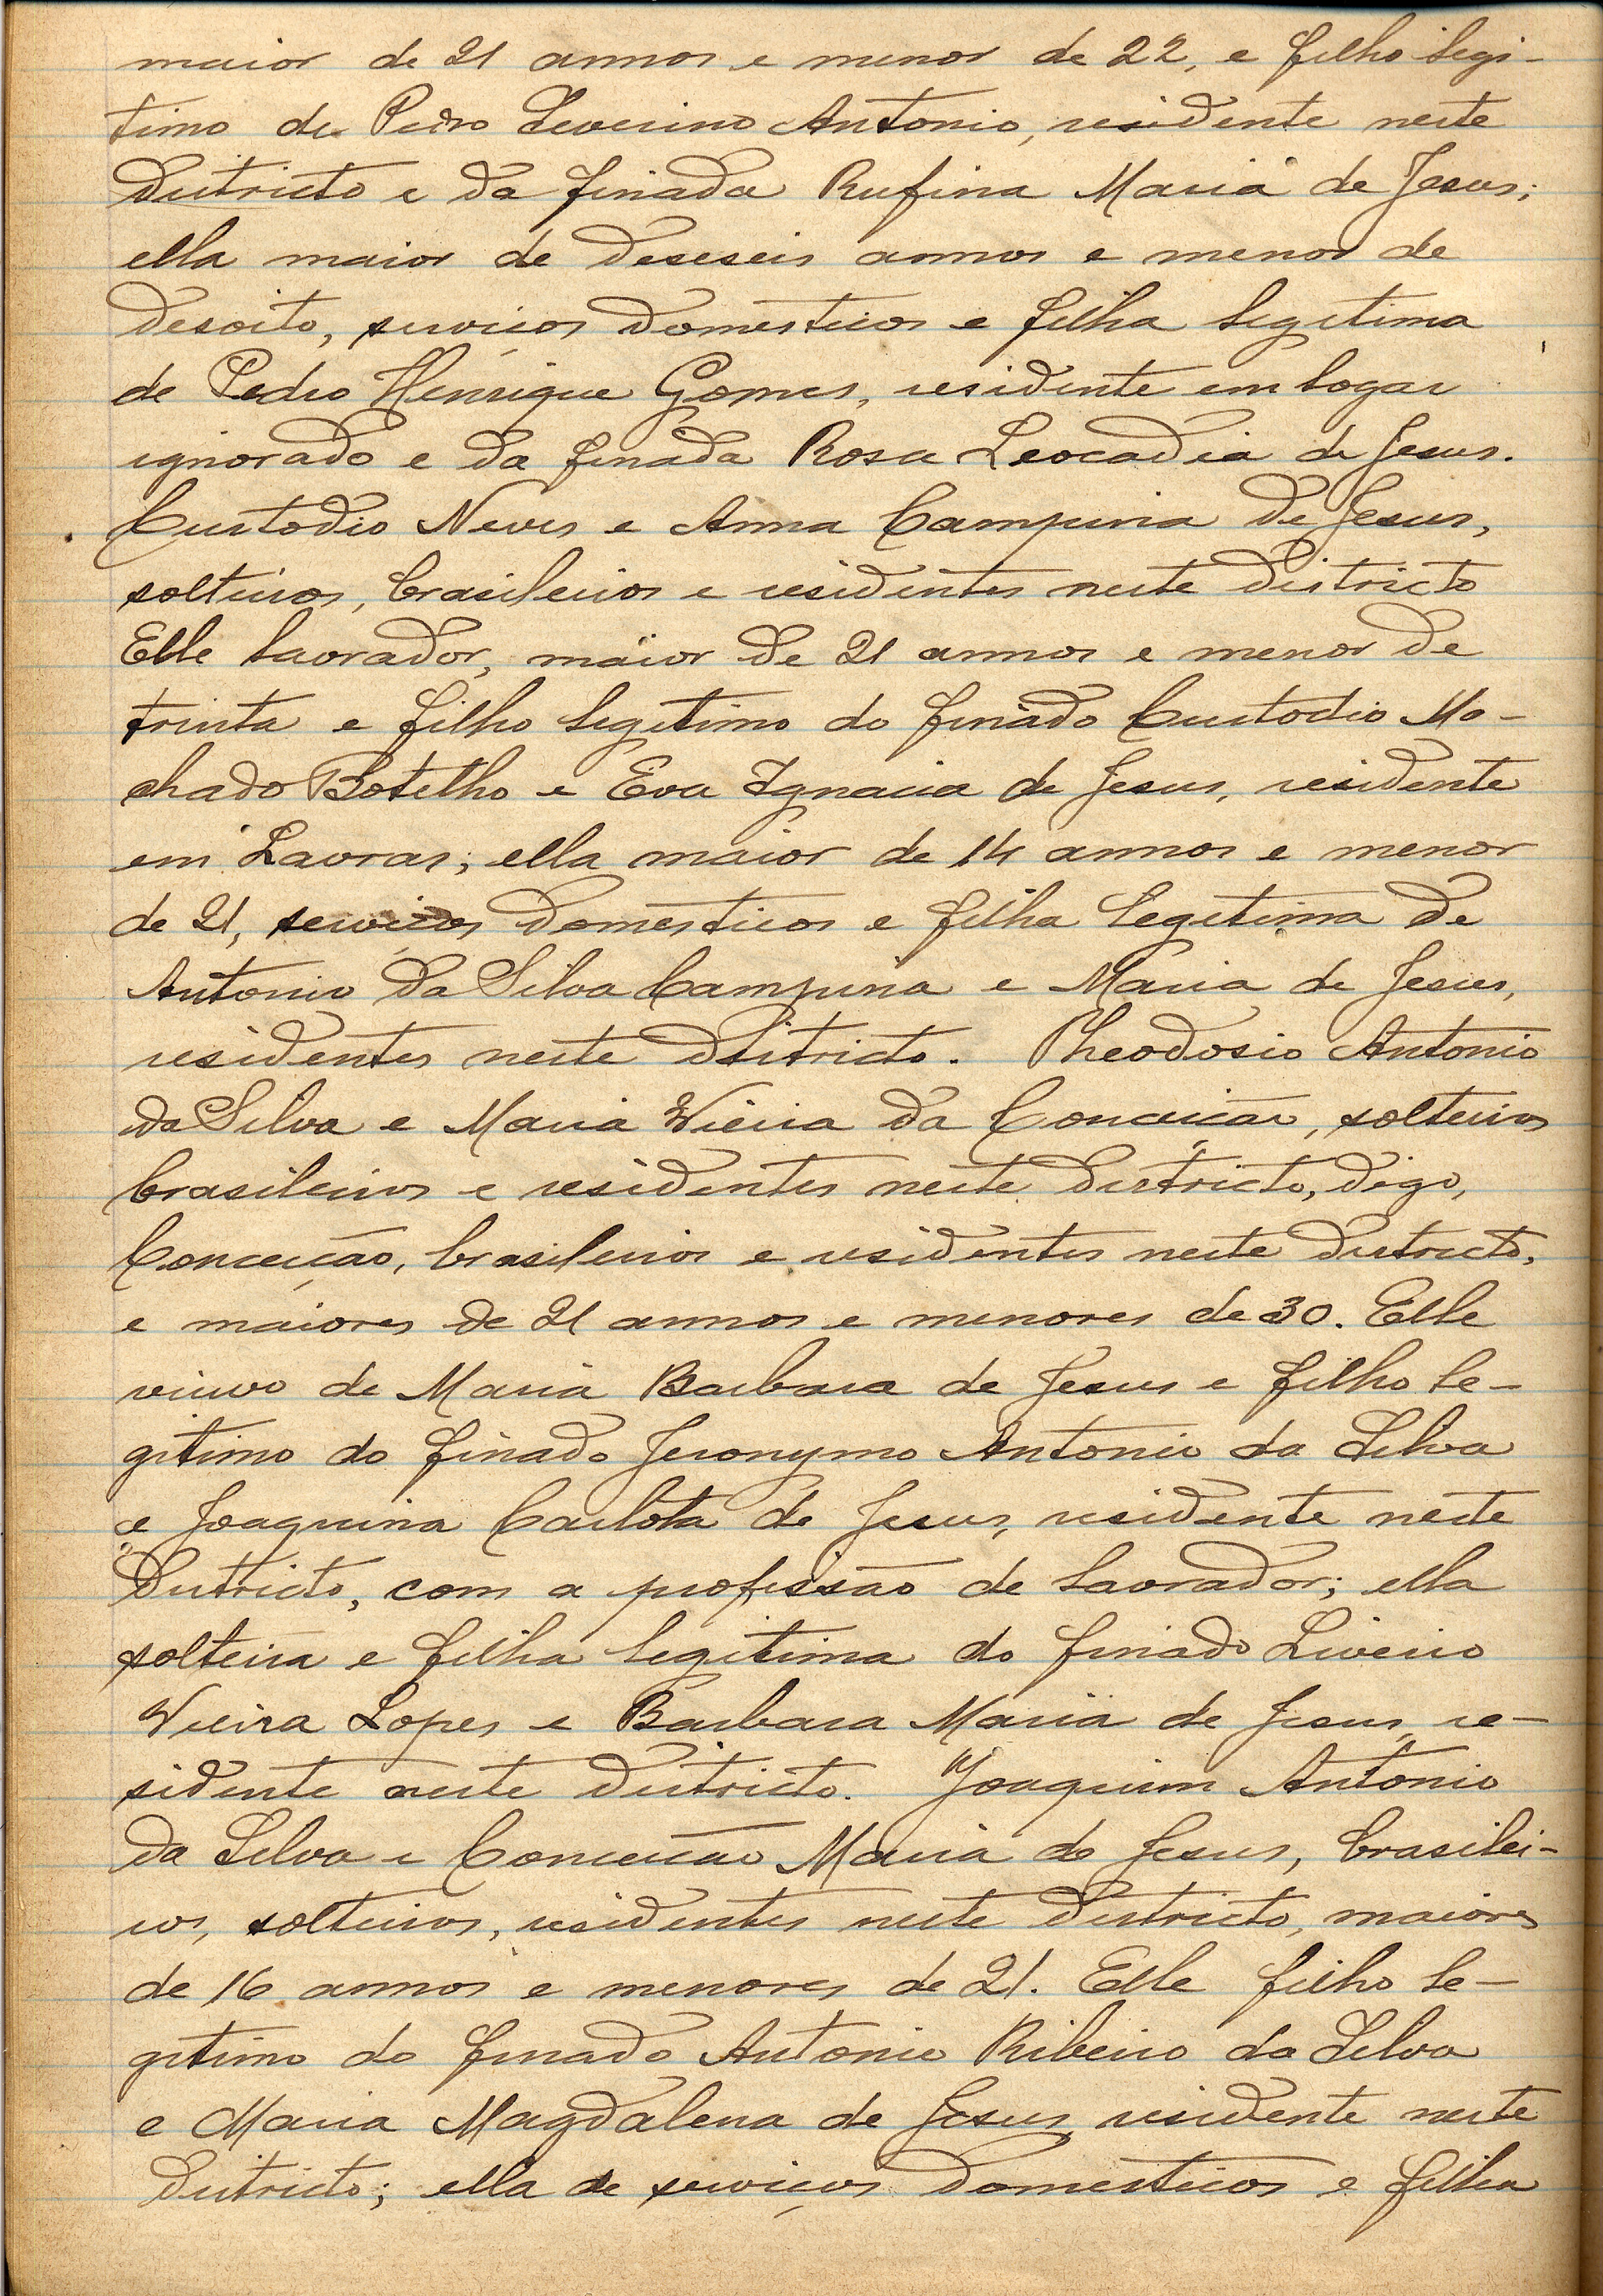 maior de 21 annos e menor de 22, e filho legi-
timo de Pedro Severino Antonio, residente neste
districto e da finada Rufina Maria de Jesus;
ella maior de deseseis annos e menor de
desoito, serviços domesticos e filha legitima
de Pedro Henrique Gomes, residente em logar
ignorado e da finada Rosa Leocadia de Jesus.
Custodio Neves e Anna Campina de Jesus,
solteiros, brasileiros e residentes neste districto
Elle lavrador, maior de 21 annos e menor de
trinta e filho legitimo do finado Custodio Ma-
chado Botelho e Eva Ignacia de Jesus, residente
em Lavras; ella maior de 14 annos e menor
de 21, serviços domesticos e filha legitima de
Antonio da Silva Campina e Maria de Jesus,
residentes neste dsitricto. Theodosio Antonio
da Silva e Maria Vieira da Conceição, solteiros
brasileiros e residentes neste districto, digo,
Conceição, brasileiros e residentes neste districto,
e maiores de 21 annos e menores de 30. Elle
viuvo de Maria Barbara de Jesus e filho le-
gitimo do finado Jeronymo Antonio da Silva
e Joaquina Carlota de Jesus, residente neste
districto, com a profissão de lavrador; ella
solteira e filha legitima do finado Liverio
Vieira Lopes e Barbara Maria de Jesus, re-
sidente neste districto. Joaquim Antonio
da Silva e Conceição Maria de Jesus, brasilei-
ros, solteiros, residentes neste districto, maiores
de 16 annos e menores de 21. Elle filho le-
gitimo do finado Antonio Ribeiro da Silva
e Maria Magdalena de Jesus, residente neste
districto; ella de serviços domesticos e filha